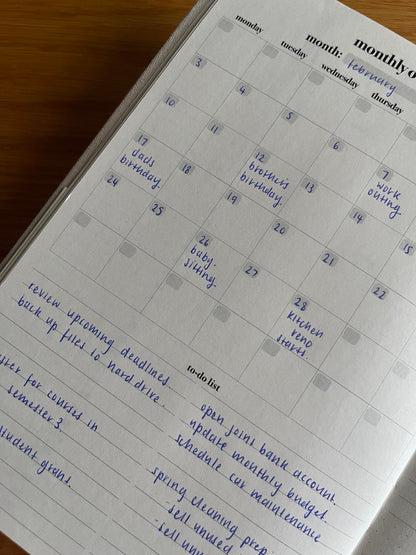 monthly o
month: february
monday tuesday wednesday thursday
3 4 5 6 7
work
outing
10 11 12 13 14 15
brother's
birthday
17 18 19 20 21 22
dads
birthday
24 25 26 27 28
baby
sitting
kitchen
reno
starts
review upcoming deadlines.
back up files to hard drive.
ster for courses in
semester 3.
student grant.
to-do list
open joint bank account.
update monthly budget.
schedule car maintenance
spring cleaning prep
- sell unused
- sell unu